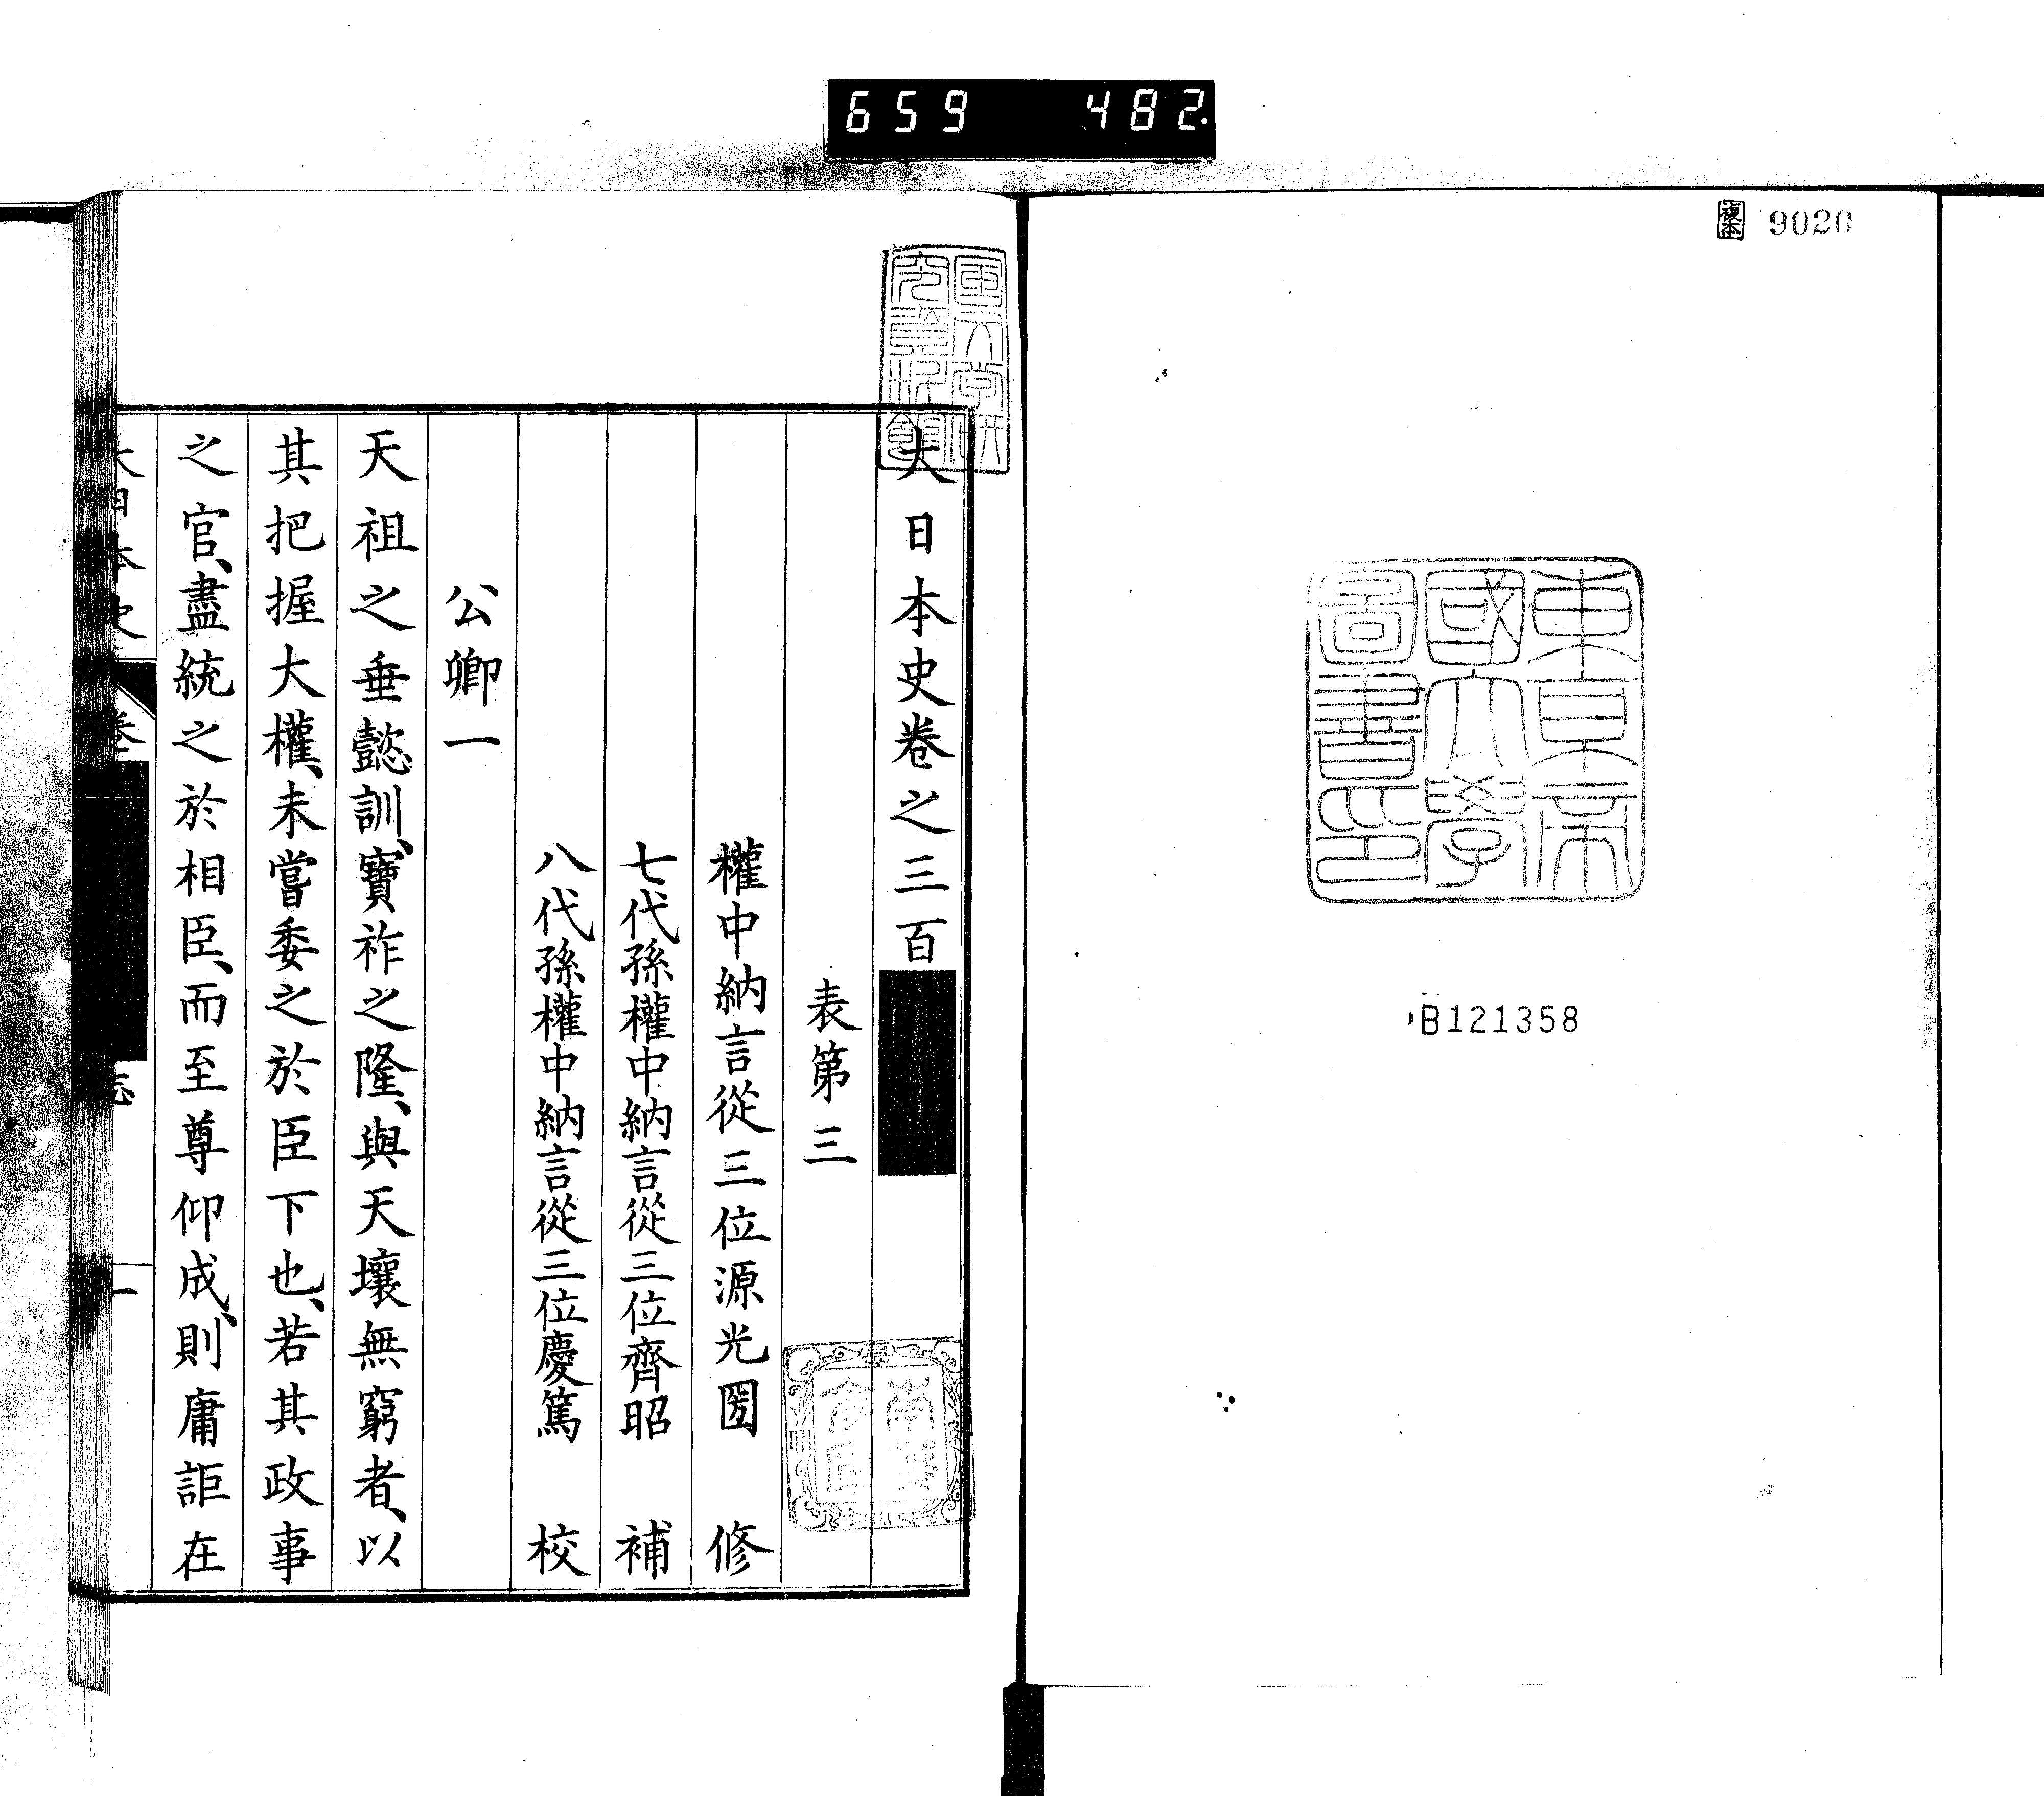 659 482
複本 9020
東京帝
國大學
圖書印
B121358
大日本史卷之三百
表第三
權中納言從三位源光圀 修
七代孫權中納言從三位齊昭 補
八代孫權中納言從三位慶篤 校
公卿一
天祖之垂懿訓、寶祚之隆、與天壤無窮者、以
其把握大權、未嘗委之於臣下也、若其政事
之官、盡統之於相臣、而至尊仰成、則庸詎在
大日本史 卷 志 一